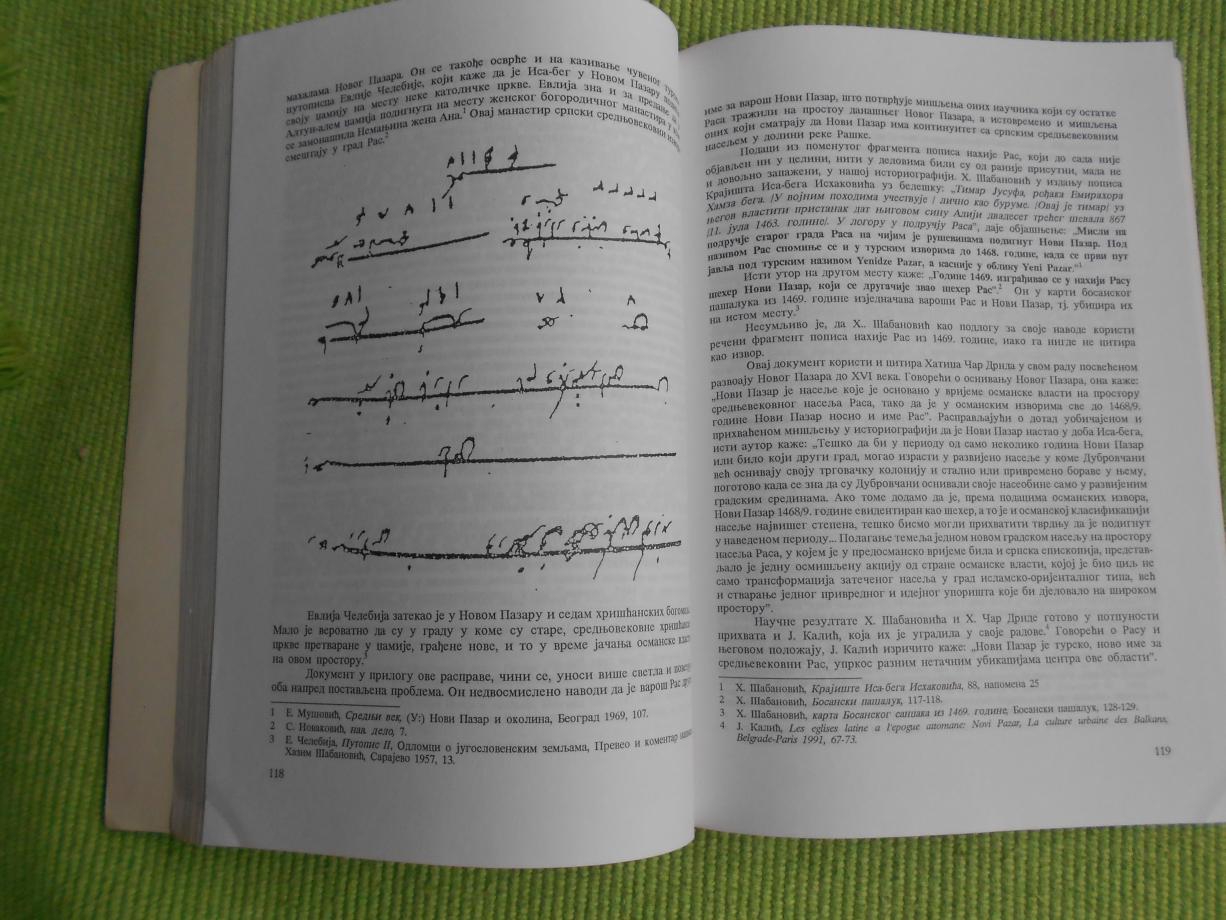 махалама Новог Пазара. Он се такође осврће и на казивање чувеног
путописца Евлије Челебије, који каже да је Иса-бег у Новом Пазару
своју џамију на месту неке католичке цркве. Евлија зна и за предање
Алтун-алем џамија подигнута на месту женског богородичног манастира у
се замонашила Немањина жена Ана.¹ Овај манастир српски средњовековни
смештају у град Рас.²
Евлија Челебија затекао је у Новом Пазару и седам хришћанских
Мало је вероватно да су у граду у коме су старе, средњовековне
цркве претваране у џамије, грађене нове, и то у време јачања османске
на овом простору.³
Документ у прилогу ове расправе, чини се, уноси више светла и
оба напред постављена проблема. Он недвосмислено наводи да је варош Рас
1 Е. Мушовић, Средњи век, (У:) Нови Пазар и околина, Београд 1969, 107.
2 С. Новаковић, нав. дело, 7.
3 Е. Челебија, Путопис II, Одломци о југословенским земљама, Превео и коментар
Хазим Шабановић, Сарајево 1957, 13.
118
име за варош Нови Пазар, што потврђује мишљења оних научника који су остатке
Раса тражили на простоу данашњег Новог Пазара, а истовремено и мишљења
оних који сматрају да Нови Пазар има континуитет са српским средњевековним
насељем у долини реке Рашке.
Подаци из поменутог фрагмента пописа нахије Рас, који до сада није
објављен ни у целини, нити у деловима били су од раније присутни, мада не
и довољно запажени, у нашој историографији. Х. Шабановић у издању пописа
Крајишта Иса-бега Исхаковића уз белешку: „Тимар Јусуфа, рођака Емирахора
Хамза бега. /У војним походима учествује / лично као буруме. /Овај је тимар/ уз
његов властити пристанак дат његовом сину Алији двадесет трећег шевала 867
/11. јула 1463. године/. У логору у подручју Раса", даје објашњење: „Мисли на
подручје старог града Раса на чијим је рушевинама подигнут Нови Пазар. Под
називом Рас спомиње се и у турским изворима до 1468. године, када се први пут
јавља под турским називом Yenidze Pazar, а касније у облику Yeni Pazar."¹
Исти утор на другом месту каже: „Године 1469. изграђивао се у нахији Расу
шехер Нови Пазар, који се другачије звао шехер Рас".² Он у карти босанског
пашалука из 1469. године изједначава вароши Рас и Нови Пазар, тј. убицира их
на истом месту.³
Несумљиво је, да Х.. Шабановић као подлогу за своје наводе користи
речени фрагмент пописа нахије Рас из 1469. године, иако га нигде не цитира
као извор.
Овај документ користи и цитира Хатиџа Чар Дрнда у свом раду посвећеном
развоају Новог Пазара до XVI века. Говорећи о оснивању Новог Пазара, она каже:
„Нови Пазар је насеље које је основано у вријеме османске власти на простору
средњевековног насеља Раса, тако да је у османским изворима све до 1468/9.
године Нови Пазар носио и име Рас". Расправљајући о дотад уобичајеном и
прихваћеном мишљењу у историографији да је Нови Пазар настао у доба Иса-бега,
исти аутор каже: „Тешко да би у периоду од само неколико година Нови Пазар
или било који други град, могао израсти у развијено насеље у коме Дубровчани
већ оснивају своју трговачку колонију и стално или привремено бораве у њему,
поготово када се зна да су Дубровчани оснивали своје насеобине само у развијеним
градским срединама. Ако томе додамо да је, према подацима османских извора,
Нови Пазар 1468/9. године евидентиран као шехер, а то је и османској класификацији
насеље највишег степена, тешко бисмо могли прихватити тврдњу да је подигнут
у наведеном периоду... Полагање темеља једном новом градском насељу на простору
насеља Раса, у којем је у предосманско вријеме била и српска епископија, представ-
љало је једну осмишљену акцију од стране османске власти, којој је био циљ не
само трансформација затеченог насеља у град исламско-оријенталног типа, већ
и стварање једног привредног и идејног упоришта које би дјеловало на широком
простору".
Научне резултате Х. Шабановића и Х. Чар Дрнде готово у потпуности
прихвата и Ј. Калић, која их је уградила у своје радове.⁴ Говорећи о Расу и
његовом положају, Ј. Калић изричито каже: „Нови Пазар је турско, ново име за
средњевековни Рас, упркос разним нетачним убикацијама центра ове области".
1 Х. Шабановић, Крајиште Иса-бега Исхаковића, 88, напомена 25
2 Х. Шабановић, Босански пашалук, 117-118.
3 Х. Шабановић, карта Босанског санџака из 1469. године, Босански пашалук, 128-129.
4 Ј. Калић, Les eglises latine a l'epogue attomane: Novi Pazar, La culture urbaine des Balkans,
Belgrade-Paris 1991, 67-73.
119